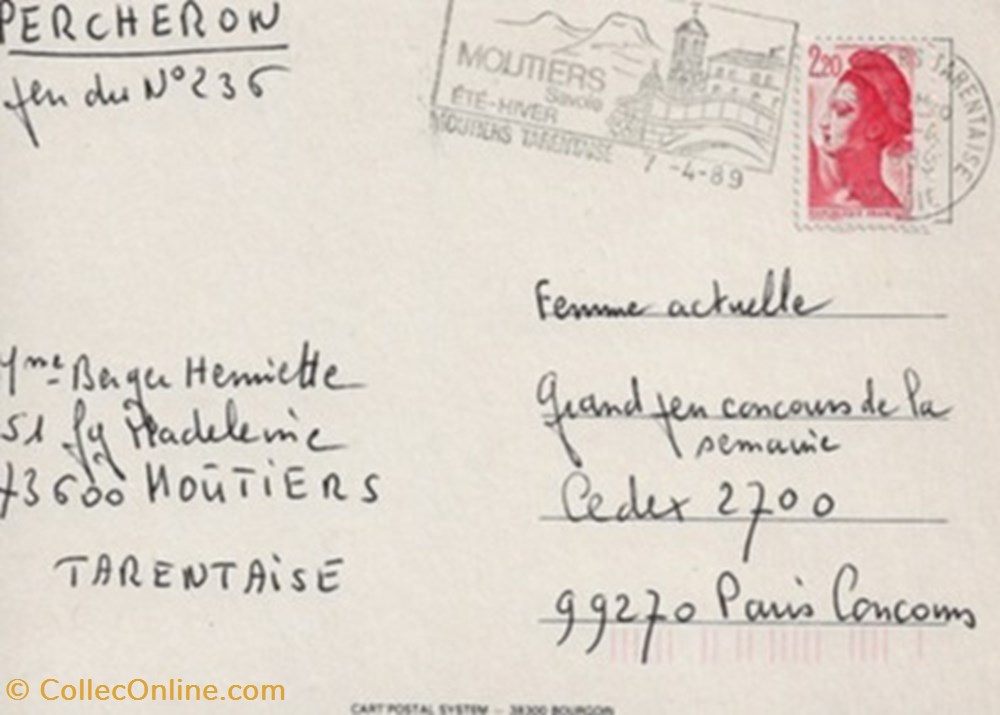 PERCHERON
jeu du N° 236
MOUTIERS
Savoie
ÉTÉ-HIVER
MOUTIERS TARENTAISE
7 -4-89
2,20
RS TARENTAISE
Mme Berger Henriette
51 fg Madeleine
73600 MOÛTIERS
TARENTAISE
Femme actuelle
Grand jeu concours de la
semaine
Cedex 2700
99270 Paris Concours
© CollecOnline.com
CART POSTAL SYSTEM — 38300 BOURGOIN